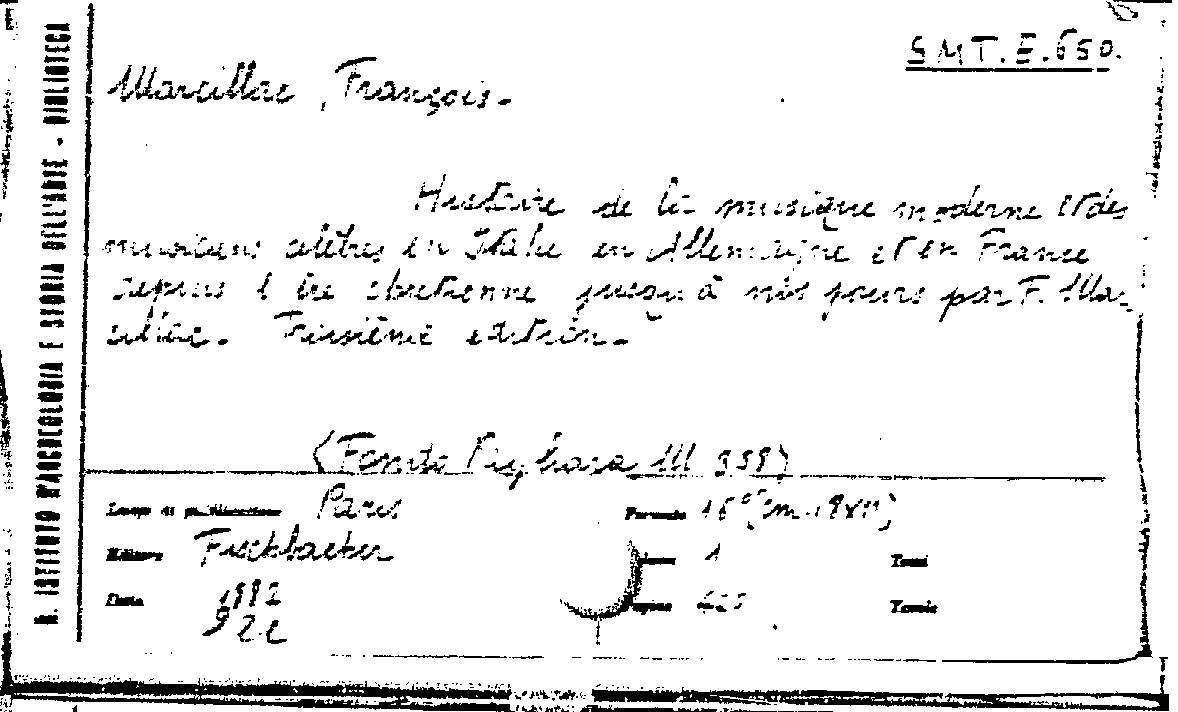 S.M.T.E.650.
Marcillac, François.
Histoire de la musique moderne et des
musiciens célèbres en Italie en Allemagne et en France
depuis l'ère chrétienne jusqu'à nos jours par F. Mar-
cillac. Troisième édition.
(Fondo Pighara M 959)
Luogo di pubblicazione Paris
Formato 16° (cm. 19x11)
Editore Fischbacher
Volume 1
Tomi
Data 1882
Pagine 425
Tavole
R. ISTITUTO D'ARCHEOLOGIA E STORIA DELL'ARTE - BIBLIOTECA